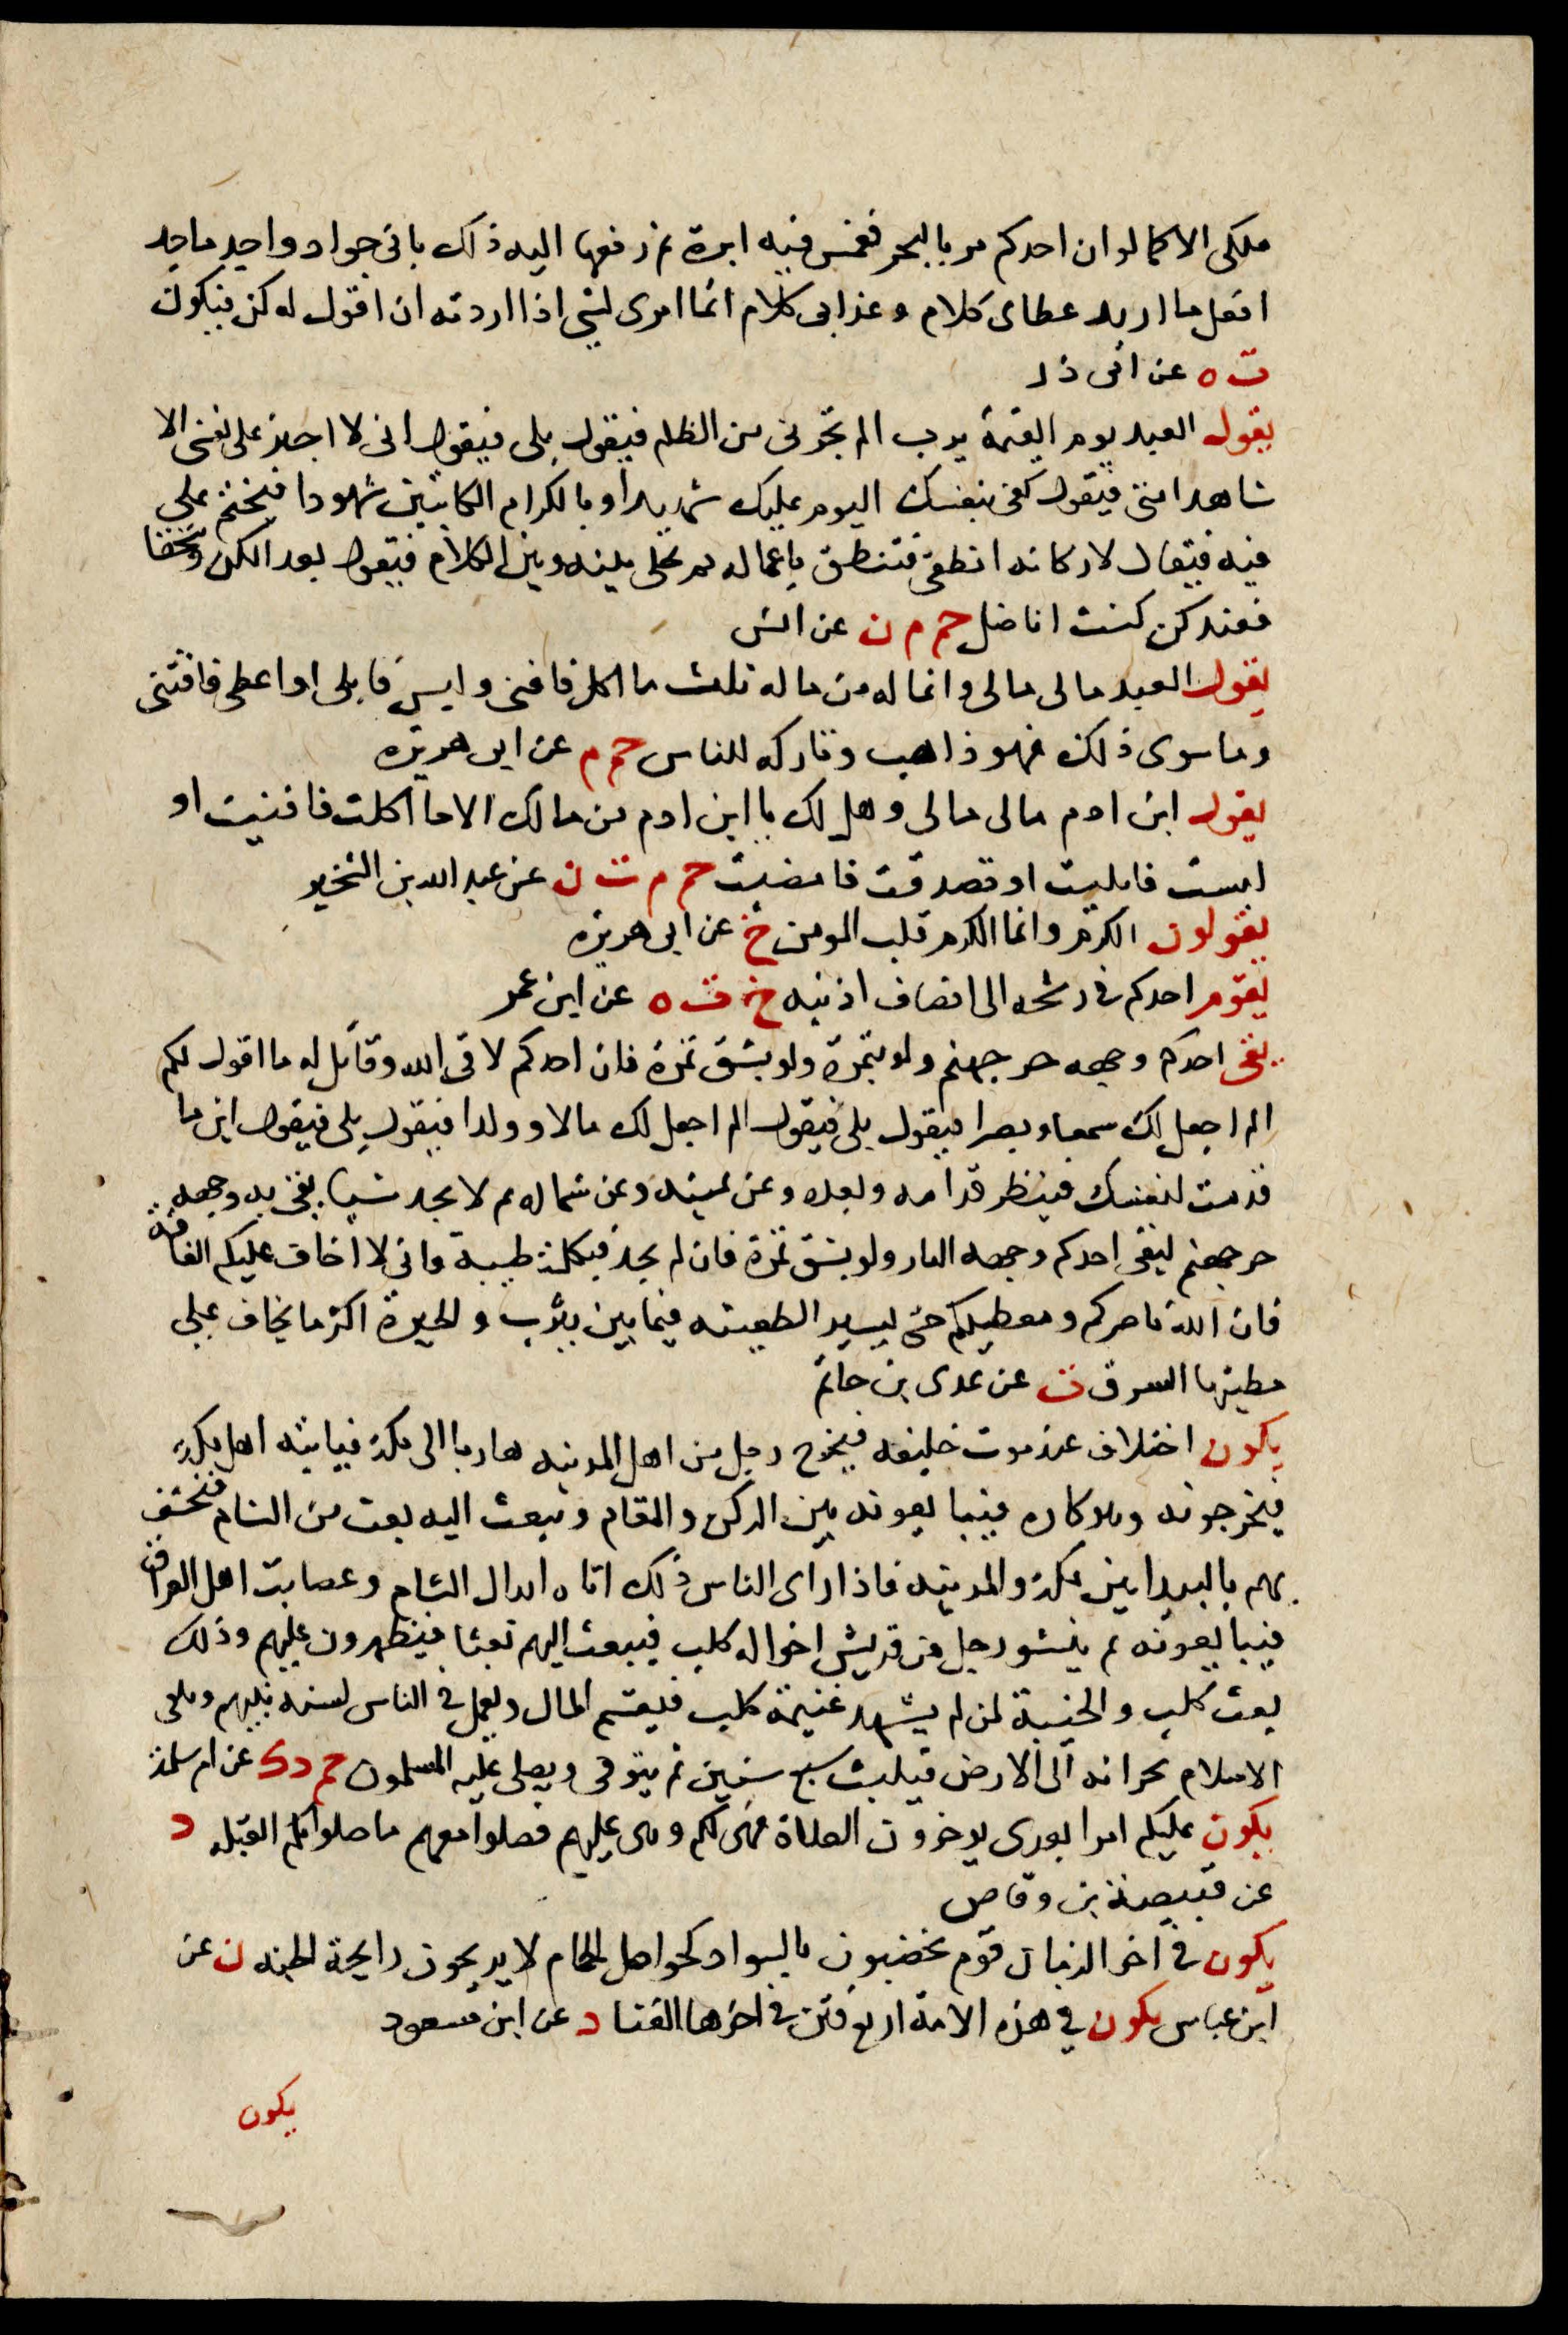 ملكى الا كما لو ان احدكم مر بالبحر فغمس فيه ابرة ثم رفعها اليه ذلك بانى جواد واجد ماجد
افعل ما اريد عطاى كلام وعذابى كلام انما امرى لشى اذا اردته ان اقول له كن فيكون
ت ه عن ابى ذر
يقول العبد يوم القيمة يرب الم تجرنى من الظلم فيقول بلى فيقول انى لا اجيز على نفسى الا
شاهدا منى فيقول كفى بنفسك اليوم عليك شهيدا وبالكرام الكاتبين شهودا فيختم على
فيه فيقال لاركانه انطقى فتنطق باعماله ثم يخلى بينه وبين الكلام فيقول بعدا لكن وسحقا
فعنكن كنت اناضل حم م ن عن انس
يقول العبد مالى مالى وانما له من ماله ثلث ما اكل فافنى او لبس فابلى او اعطى فاقتنى
وما سوى ذلك فهو ذاهب وتاركه للناس حم م عن ابى هريره
يقول ابن ادم مالى مالى وهل لك يا ابن ادم من مالك الا ما اكلت فافنيت او
لبست فابليت او تصدقت فامضيت حم م ت ن عن عبد الله بن الشخير
يقولون الكرم وانما الكرم قلب المومن خ عن ابى هريره
يقوم احدكم فى رشحه الى انصاف اذنيه خ ت ه عن ابن عمر
يقى احدكم وجهه حر جهنم ولو بتمرة ولو بشق تمرة فان احدكم لاقى الله وقائل له ما اقول لكم
الم اجعل لك سمعا وبصرا فيقول بلى فيقول الم اجعل لك مالا وولدا فيقول بلى فيقول اين ما
قدمت لنفسك فينظر قدامه وبعده وعن يمينه وعن شماله ثم لا يجد شيا يقى به وجهه
حر جهنم ليقى احدكم وجهه النار ولو بشق تمرة فان لم يجد فبكلمة طيبة وانى لا اخاف عليكم الفاقة
فان الله ناصركم ومعطيكم حتى ليسير الظعينه فيما بين يثرب والحيرة اكثر ما يخاف على
مطيتها السرق ت عن عدى بن حاتم
يكون اختلاف عند موت خليفه فيخرج رجل من اهل المدينه هاربا الى مكة فياتيه اهل مكة
فيخرجونه وهو كاره فيبايعونه بين الركن والمقام ويبعث اليه بعث من الشام فيخسف
بهم بالبيدا بين مكة والمدينه فاذا راى الناس ذلك اتاه ابدال الشام وعصايب اهل العراق
فيبايعونه ثم ينشو رجل من قريش اخواله كلب فيبعث اليهم بعثا فيظهرون عليهم وذلك
بعث كلب والخيبة لمن لم يشهد غنيمة كلب فيقسم المال ويعمل فى الناس بسنه نبيهم ويلقى
الاسلام بجرانه الى الارض فيلبث سبع سنين ثم يتوفى ويصلى عليه المسلمون حم د ك عن ام سلمة
يكون عليكم امرا بعدى يوخرون الصلاة فهى لكم وهى عليهم فصلوا معهم ما صلوا بكم القبله د
عن قبيصة بن وقاص
يكون فى اخر الزمان قوم يخضبون بالسواد كحواصل الحمام لا يريحون رايحة الجنه ن عن
ابن عباس يكون فى هذه الامة اربع فتن فى اخرها الفنا د عن ابن مسعود
يكون